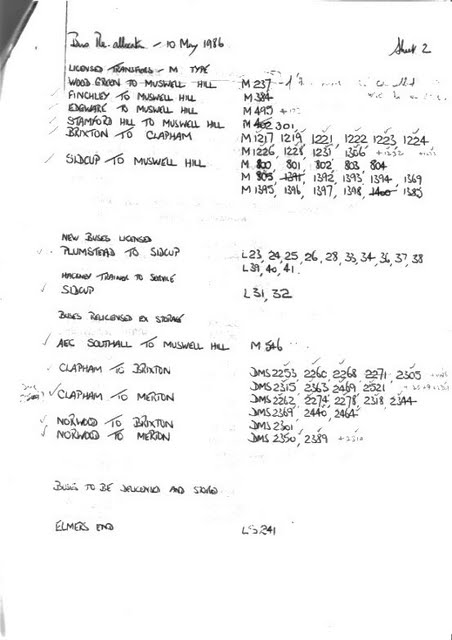 Bus Re-allocation - 10 May 1986 Sheet 2
LICENSED TRANSFERS - M TYPE
WOOD GREEN TO MUSWELL HILL M 237
FINCHLEY TO MUSWELL HILL M 384
EDGWARE TO MUSWELL HILL M 495
STAMFORD HILL TO MUSWELL HILL M 301
BRIXTON TO CLAPHAM M 1217 1219, 1221, 1222 1223 1224
M 1226, 1228, 1231 1366
SIDCUP TO MUSWELL HILL M 800 801 802 803 804
M 805, 1391, 1392, 1393, 1394 1369
M 1395, 1396, 1397, 1398, 1400 1385
NEW BUSES LICENSED
PLUMSTEAD TO SIDCUP L23, 24, 25, 26, 28, 33, 34, 36, 37, 38
L39, 40, 41.
HACKNEY TRAINER TO SERVICE
SIDCUP L31, 32
BUSES RELICENSED EX STORAGE
AEC SOUTHALL TO MUSWELL HILL M 546
CLAPHAM TO BRIXTON DMS 2253 2260, 2268 2271, 2305
DMS 2315 2363 2469 2521
CLAPHAM TO MERTON DMS 2262, 2274 2278, 2318 2344
DMS 2369, 2440, 2464
NORWOOD TO BRIXTON DMS 2301
NORWOOD TO MERTON DMS 2350, 2389 +2310
BUSES TO BE DELICENSED AND STORED
ELMERS END LS 241